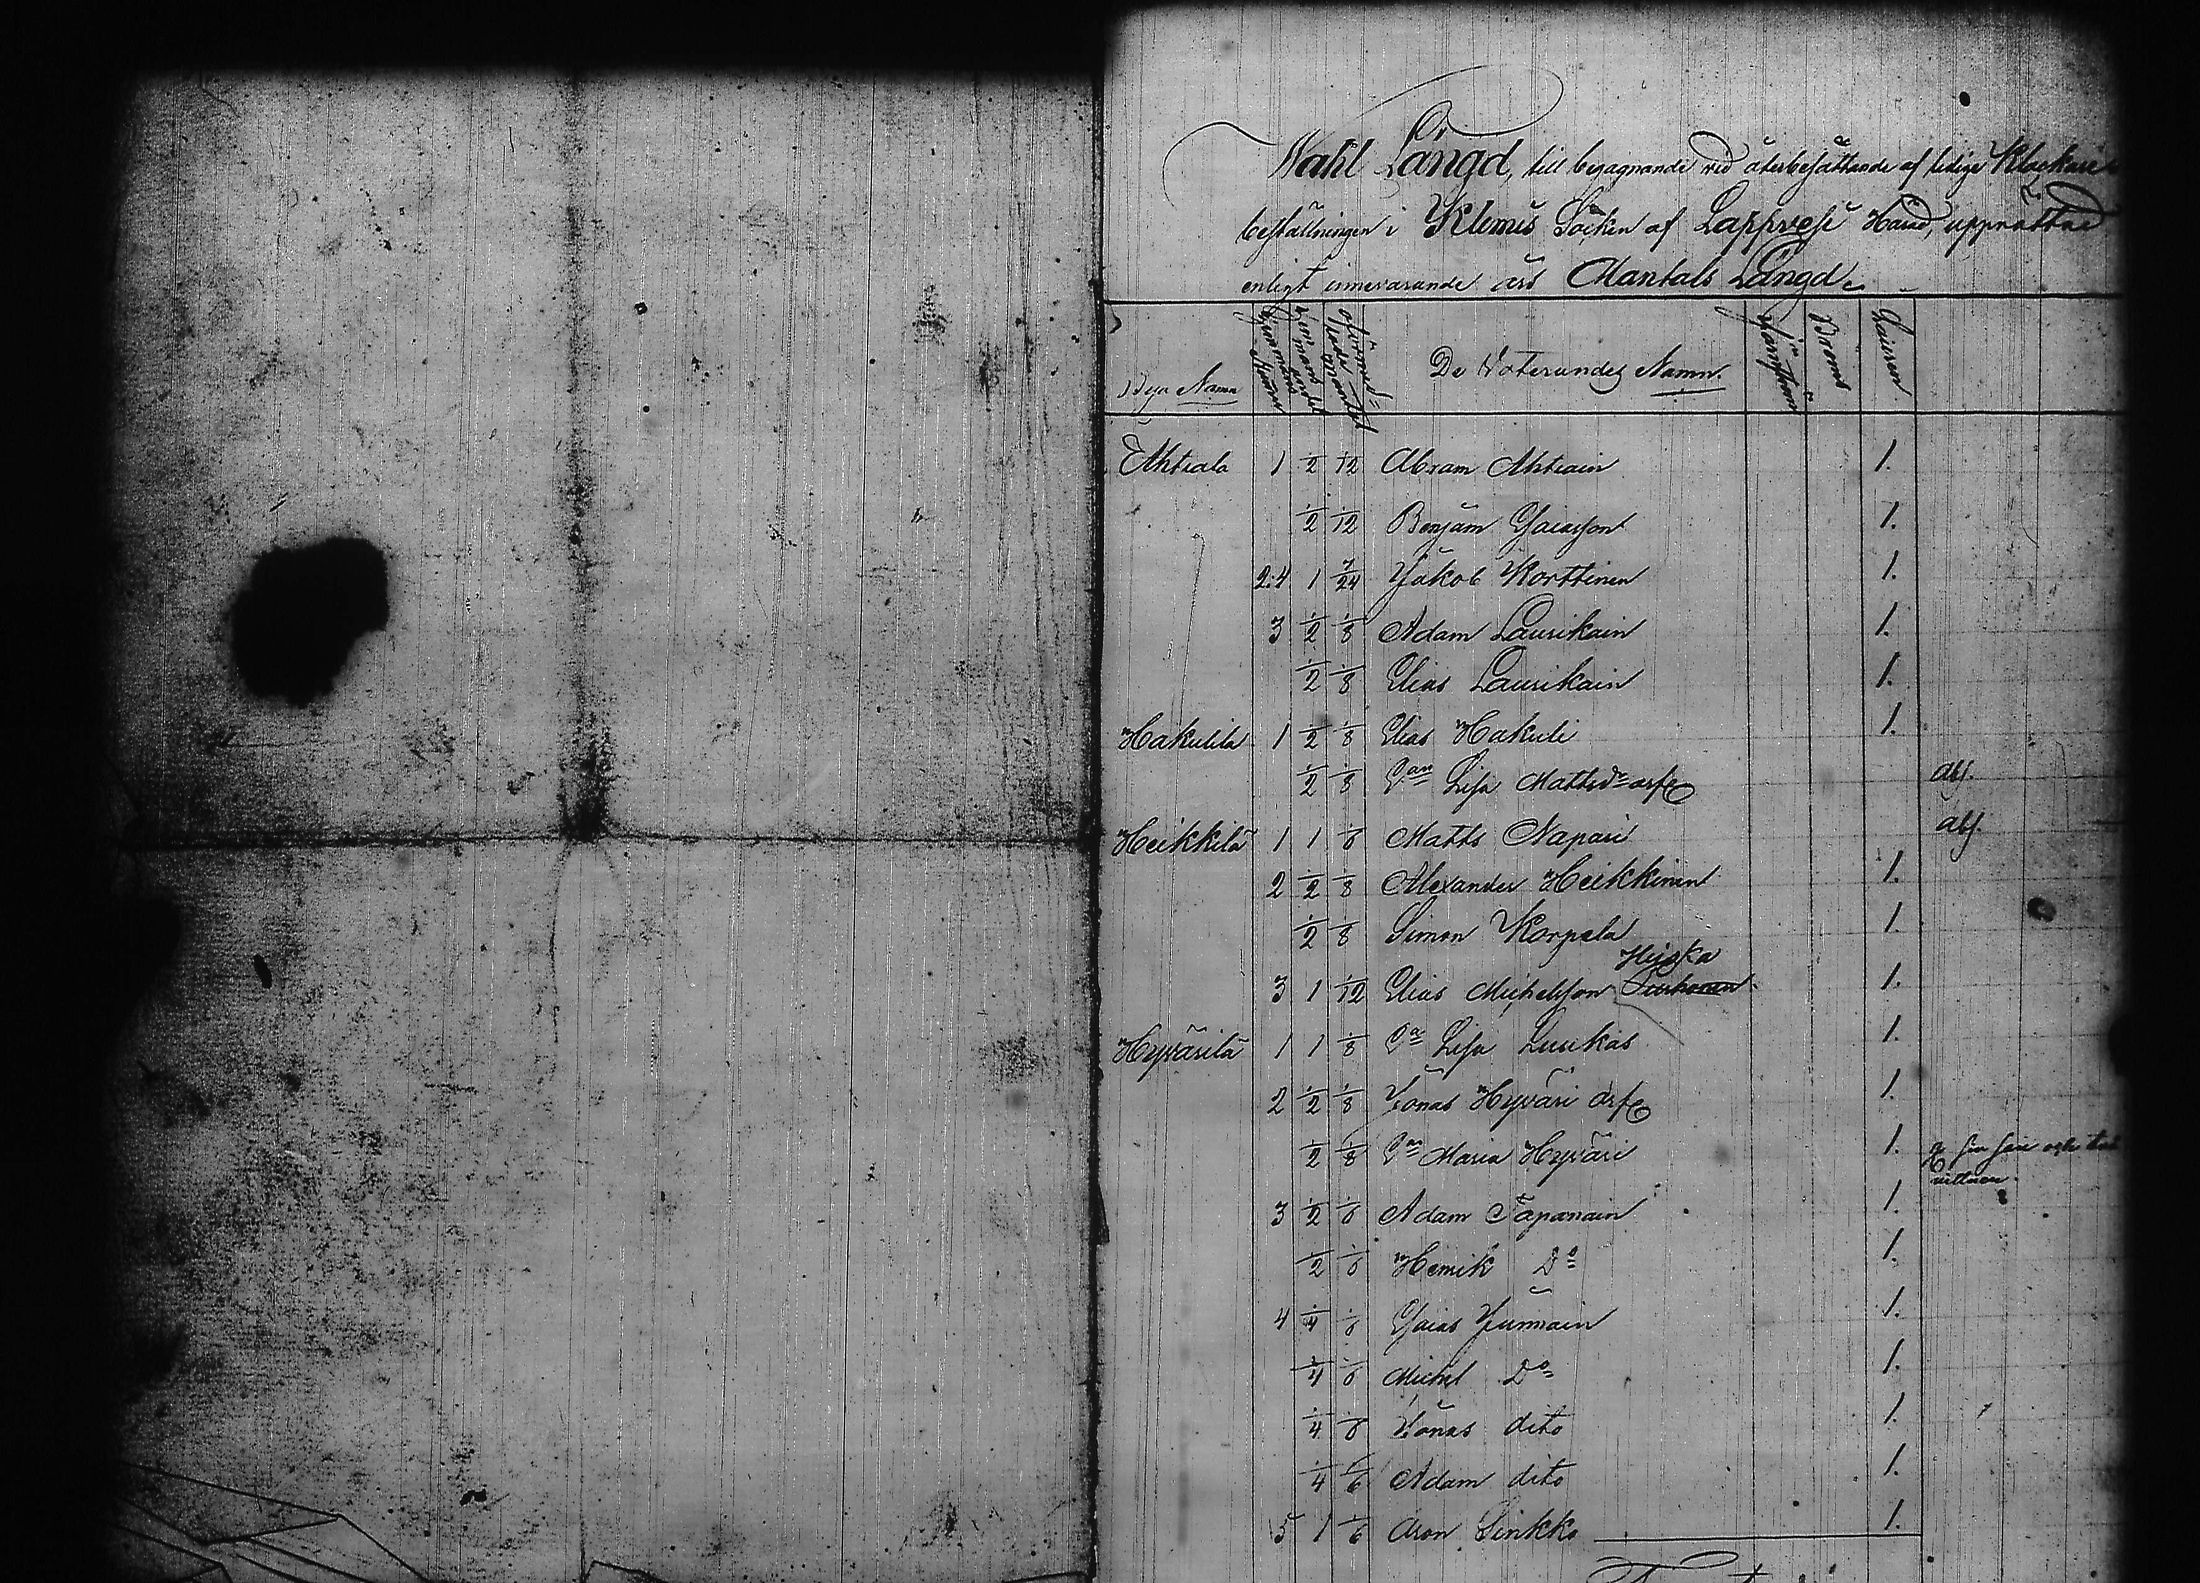 Wahl Längd, till begagnande vid återbesättande af lediga Klockare
beställningen i Klemis Socken af Lappvesi Härad, upprättad
enligt innevarande års Mantals Längd.
Bya Namn De Voterandes Namn. Broms Lauren
Ahtiala 1 1/2 1/12 Abram Ahtiain 1.
1/2 1/12 Benjam Esaiasson 1.
2.4 1 7/24 Jakob Korttinen 1.
3 1/2 1/8 Adam Laurikain 1.
1/2 1/8 Elias Laurikain 1.
Hakulila 1 1/2 1/8 Elias Hakuli 1.
1/2 1/8 Lisa Mattsdr arfr abs.
Heikkilä 1 1 1/8 Matts Napari abs.
2 1/2 1/8 Alexander Heikkinen 1.
1/2 1/8 Simon Korpela 1.
Heiska
3 1 1/12 Elias Michelsson 1.
Hyvärilä 1 1 1/8 Lisa Luukas 1.
2 1/2 1/8 Jonas Hyväri arfr 1.
1/2 1/8 Maria Hyväri 1.
3 1/2 1/8 Adam Tapanain 1.
1/2 1/8 Henrik Do 1.
4 1/4 1/8 Esaias Junnain 1.
1/4 1/8 Michel Do 1.
1/4 1/8 Jonas dito 1.
1/4 1/6 Adam dito 1.
5 1 1/6 Aron Sinkko 1.